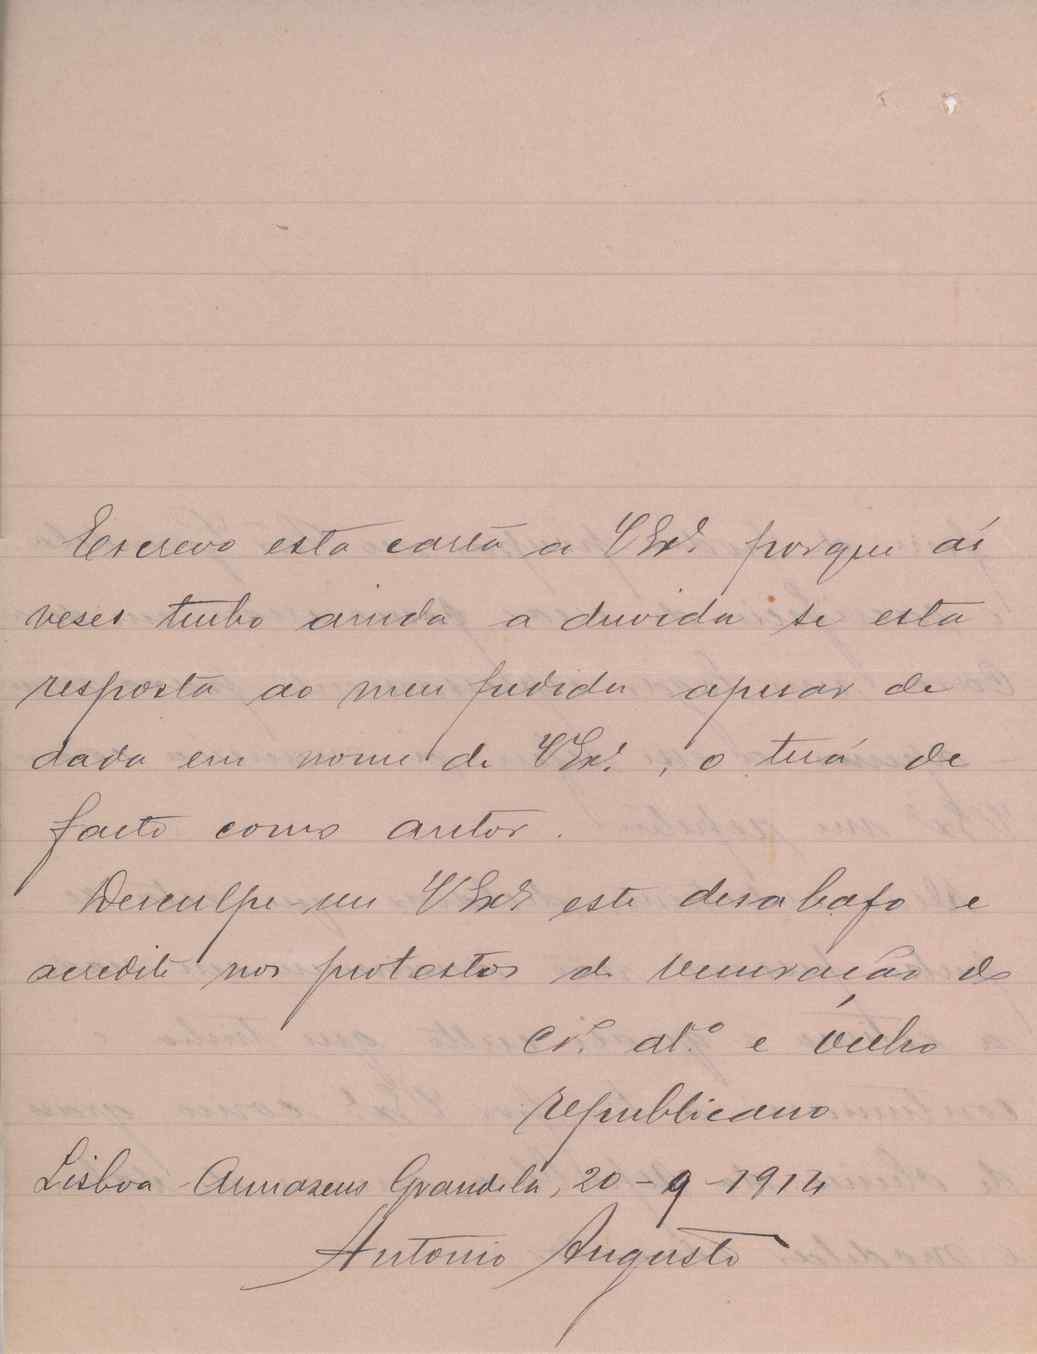 Escrevo esta carta a VExª. porque ás
veses tenho ainda a duvida se esta
resposta ao meu pedido apesar de
dada em nome de VExª., o terá de
facto como autor.
Desculpe-me VExª este desabafo e
acredite nos protestos de veneração do
crº. atº. e velho
republicano
Lisboa - Armazens Grandela, 20-9-1914
Antonio Augusto